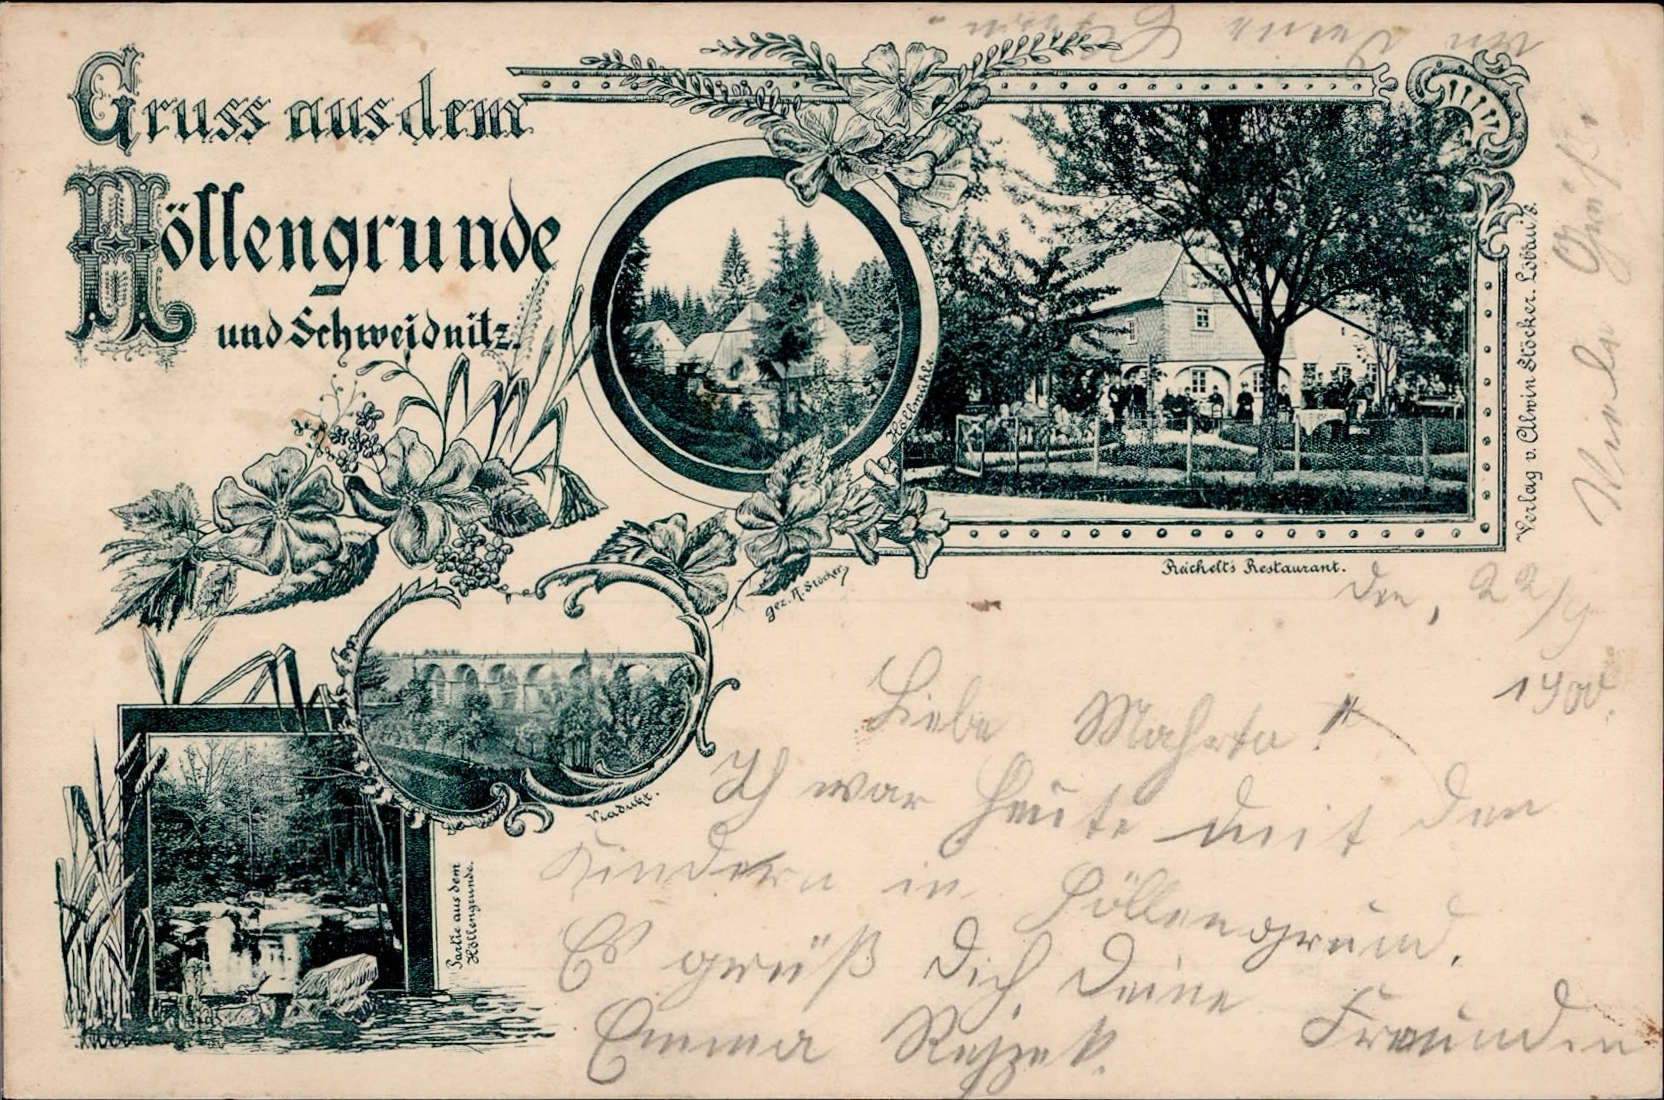 Gruss aus dem
Höllengrunde
und Schweidnitz.
Höllmühle
Reichelt's Restaurant.
Verlag v. Alwin Stöcker. Löbau i/S.
gez. A. Stöcker
Viadukt.
Partie aus dem
Höllengrunde.
den, 22/9
1900.
Liebe Mahrta!
Ich war heute mit den
Kindern in Höllengrund.
Es grüß Dich Deine Freundin
Emma
Viele Grüße
an Deine Eltern.